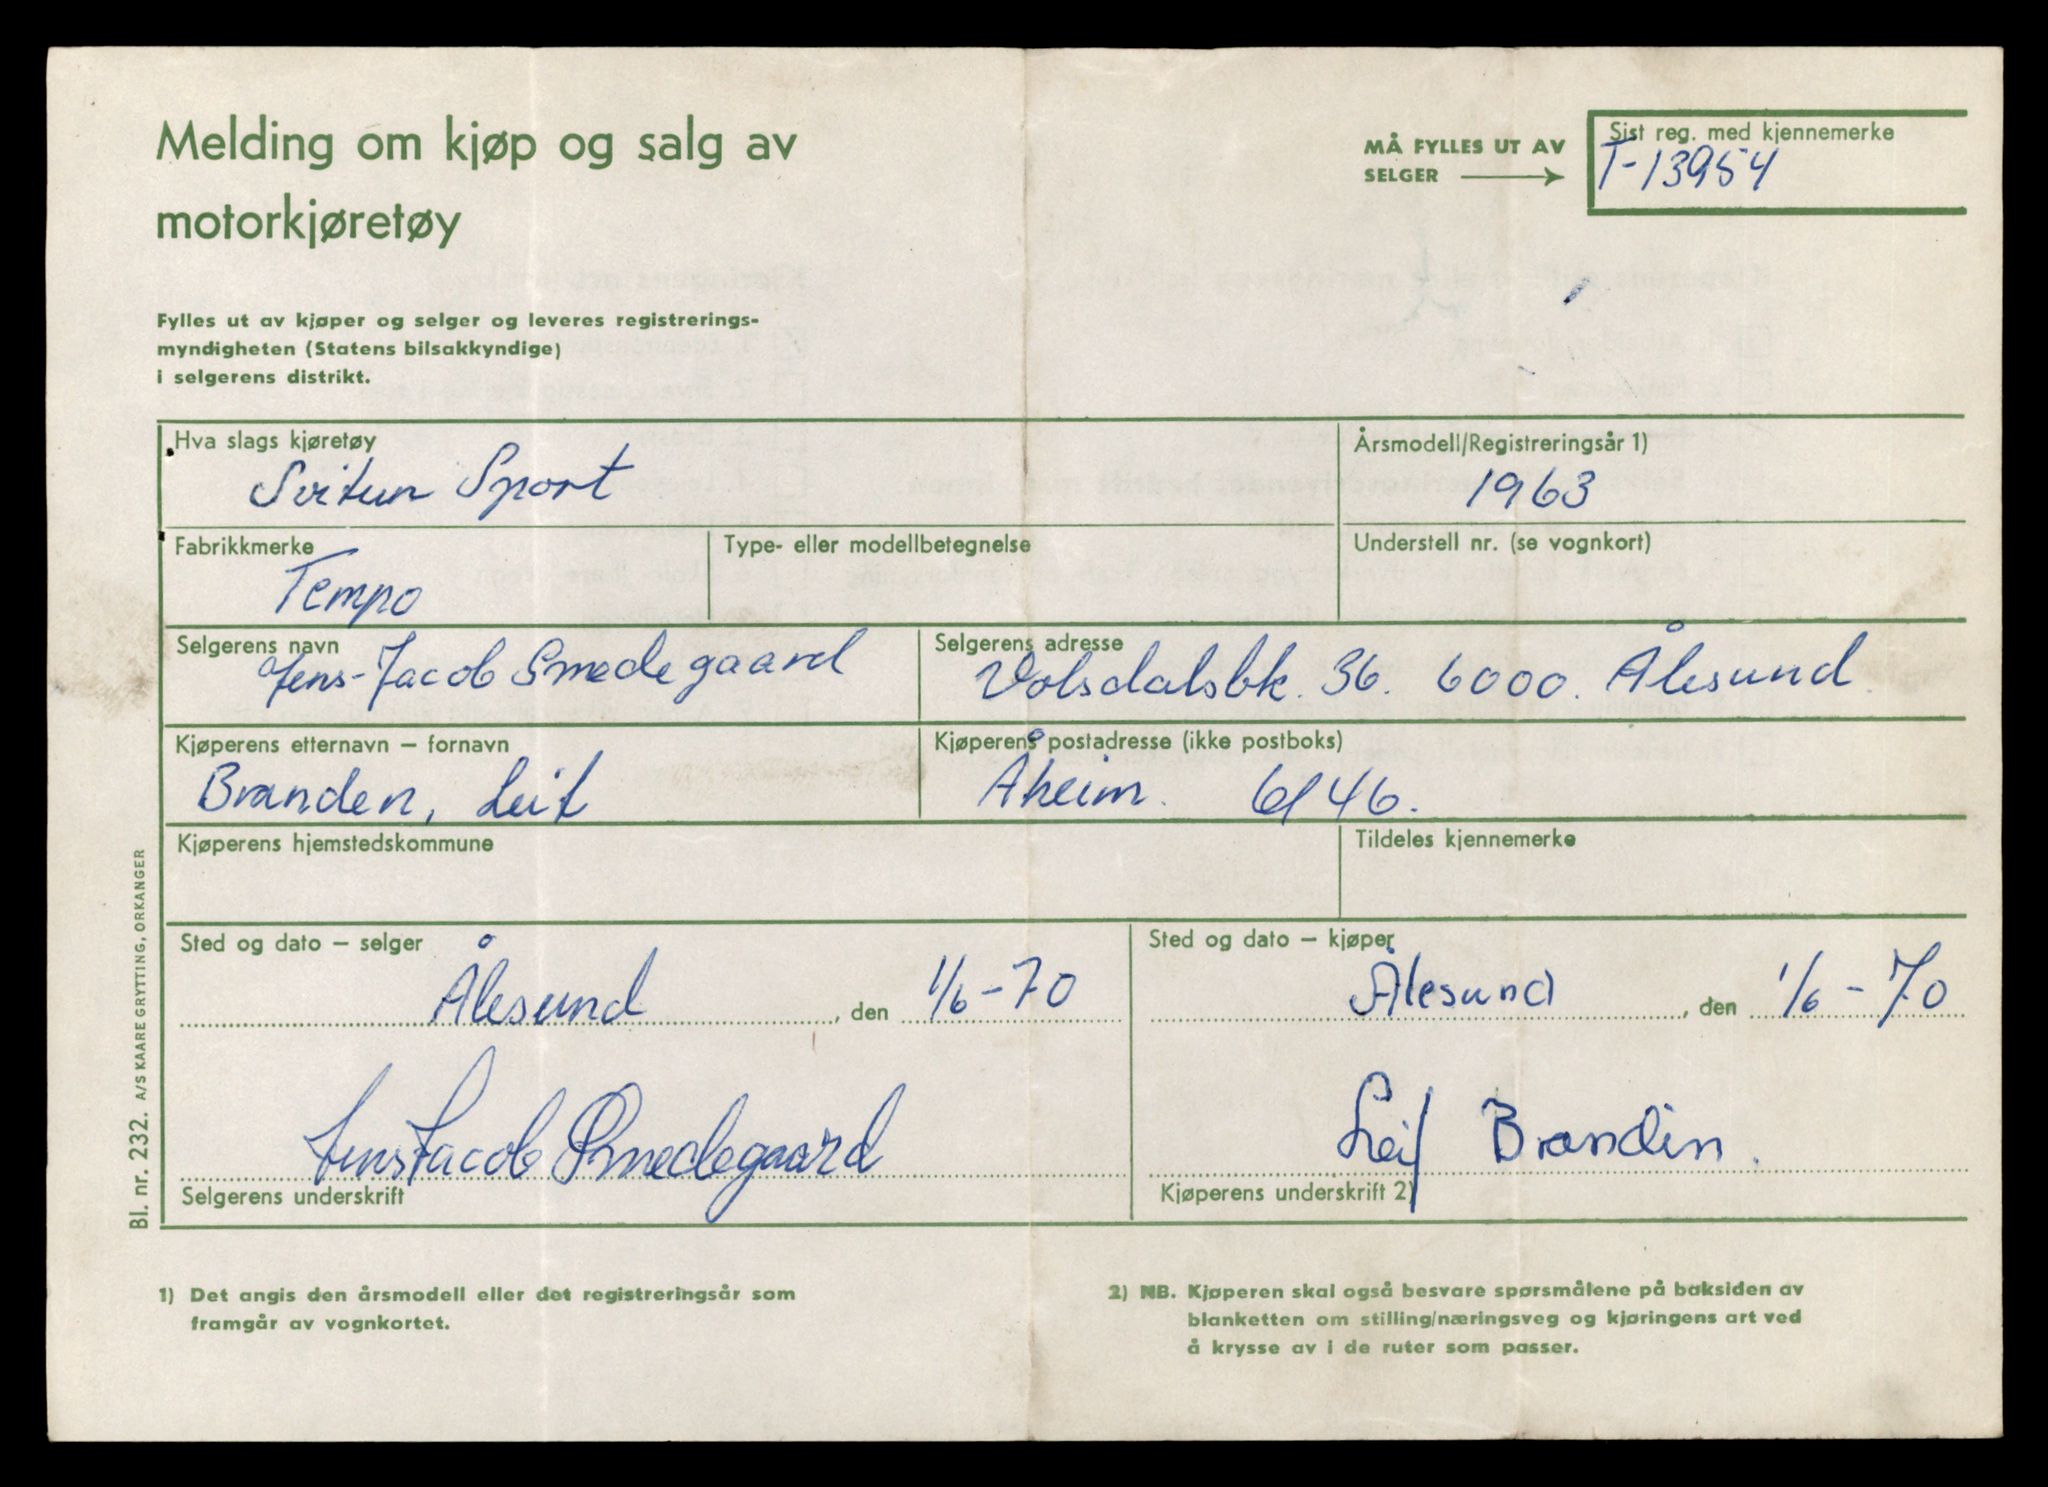 Melding om kjøp og salg av
motorkjøretøy
MÅ FYLLES UT AV
SELGER
Sist reg. med kjennemerke
T-13954
Fylles ut av kjøper og selger og leveres registrerings-
myndigheten (Statens bilsakkyndige)
i selgerens distrikt.
Hva slags kjøretøy
Svitun Sport
Årsmodell/Registreringsår 1)
1963
Fabrikkmerke
Tempo
Type- eller modellbetegnelse
Understell nr. (se vognkort)
Selgerens navn
Jens-Jacob Smedegaard
Selgerens adresse
Volsdalsbk. 36. 6000. Ålesund.
Kjøperens etternavn – fornavn
Branden, Leif
Kjøperens postadresse (ikke postboks)
Åheim. 6146.
Kjøperens hjemstedskommune
Tildeles kjennemerke
Sted og dato – selger
Ålesund, den 1/6-70
Sted og dato – kjøper
Ålesund, den 1/6-70
Jens Jacob Smedegaard
Selgerens underskrift
Leif Brandin.
Kjøperens underskrift 2)
Bl. nr. 232. A/S KAARE GRYTTING, ORKANGER
1) Det angis den årsmodell eller det registreringsår som
framgår av vognkortet.
2) NB. Kjøperen skal også besvare spørsmålene på baksiden av
blanketten om stilling/næringsveg og kjøringens art ved
å krysse av i de ruter som passer.